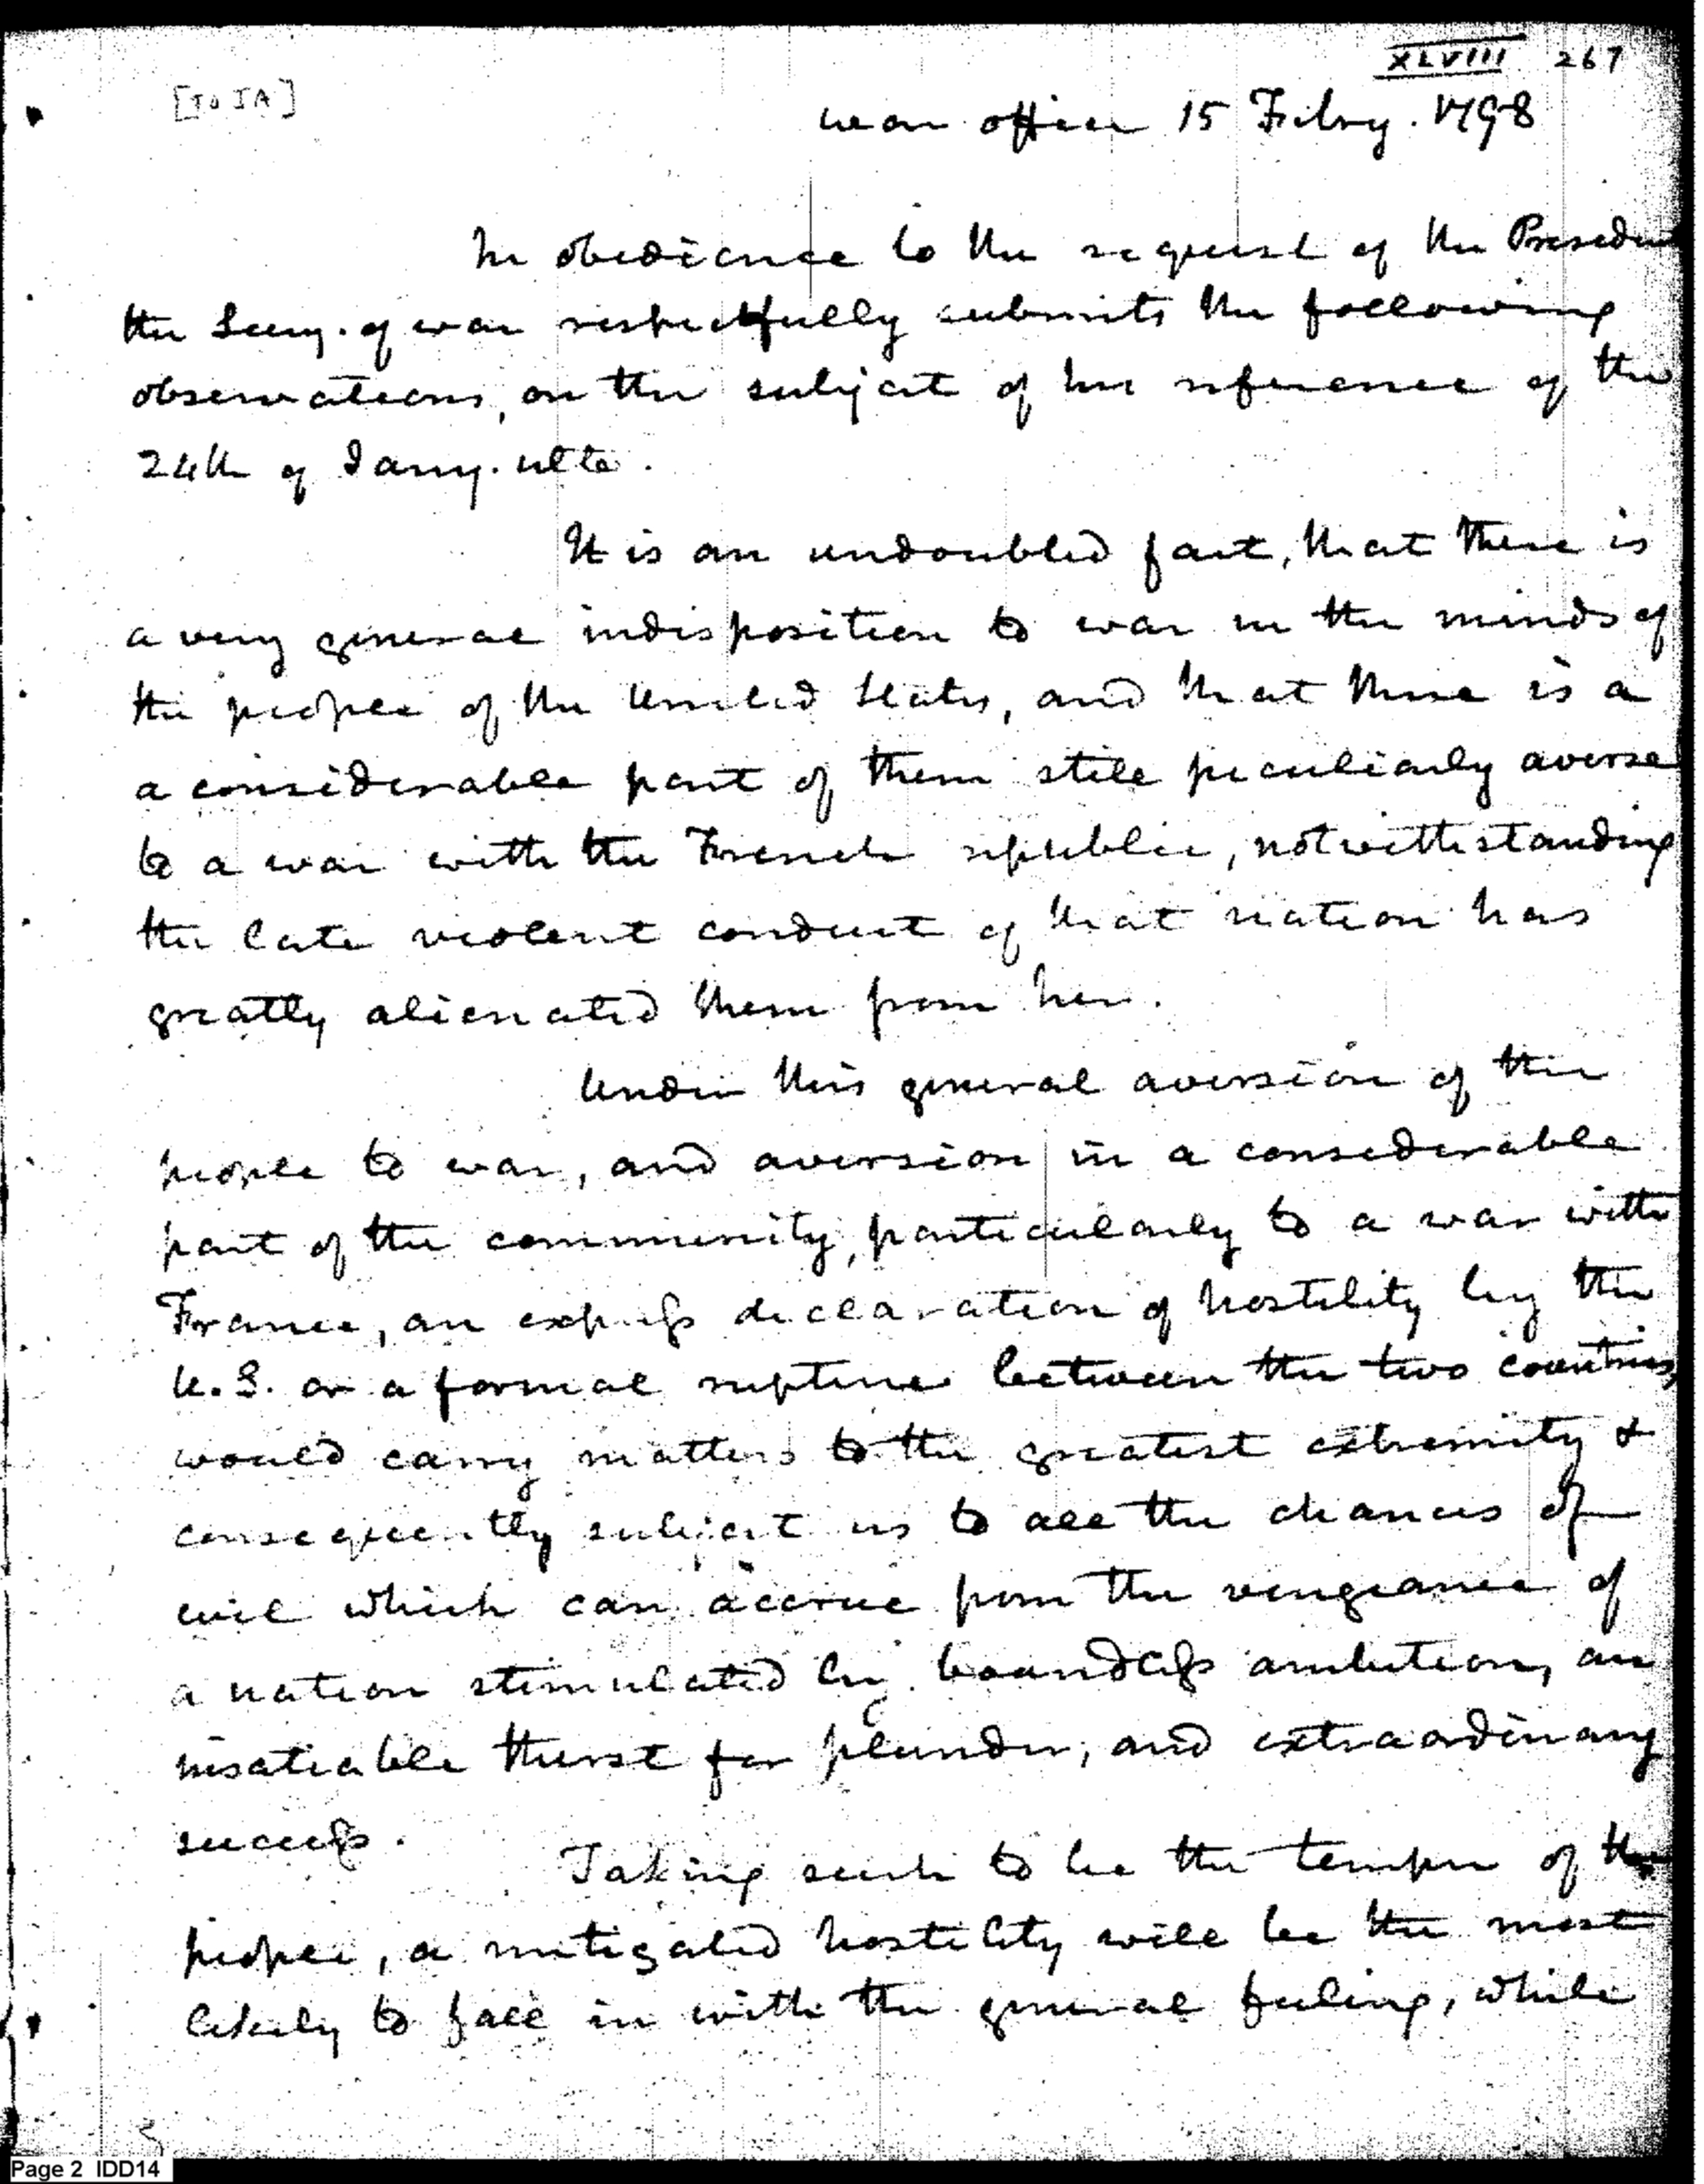 XLVIII 267
[TO JA]
war office 15 Febry. 1798
In obedience to the request of the President
the Secy. of war respectfully submits the following
observations, on the subject of his reference of the
24th of Jany. ulto.
It is an undoubted fact, that there is
a very general indisposition to war in the minds of
the people of the United States, and that there is a
a considerable part of them stile peculiarly averse
to a war with the French republic, notwithstanding
the late violent conduct of that nation has
greatly alienated them from her.
Under this general aversion of the
people to war, and aversion in a considerable
part of the community, particularly to a war with
France, an express declaration of hostility by the
U.S. or a formal rupture between the two countries,
would carry matters to the greatest extremity &
consequently subject us to all the chances of
evil which can accrue from the vengeance of
a nation stimulated by boundless ambition, an
insatiable thirst for plunder, and extraordinary
success.
Taking such to be the temper of the
people, a mitigated hostility will be the most
likely to fall in with the general feeling, while
Page 2 IDD14